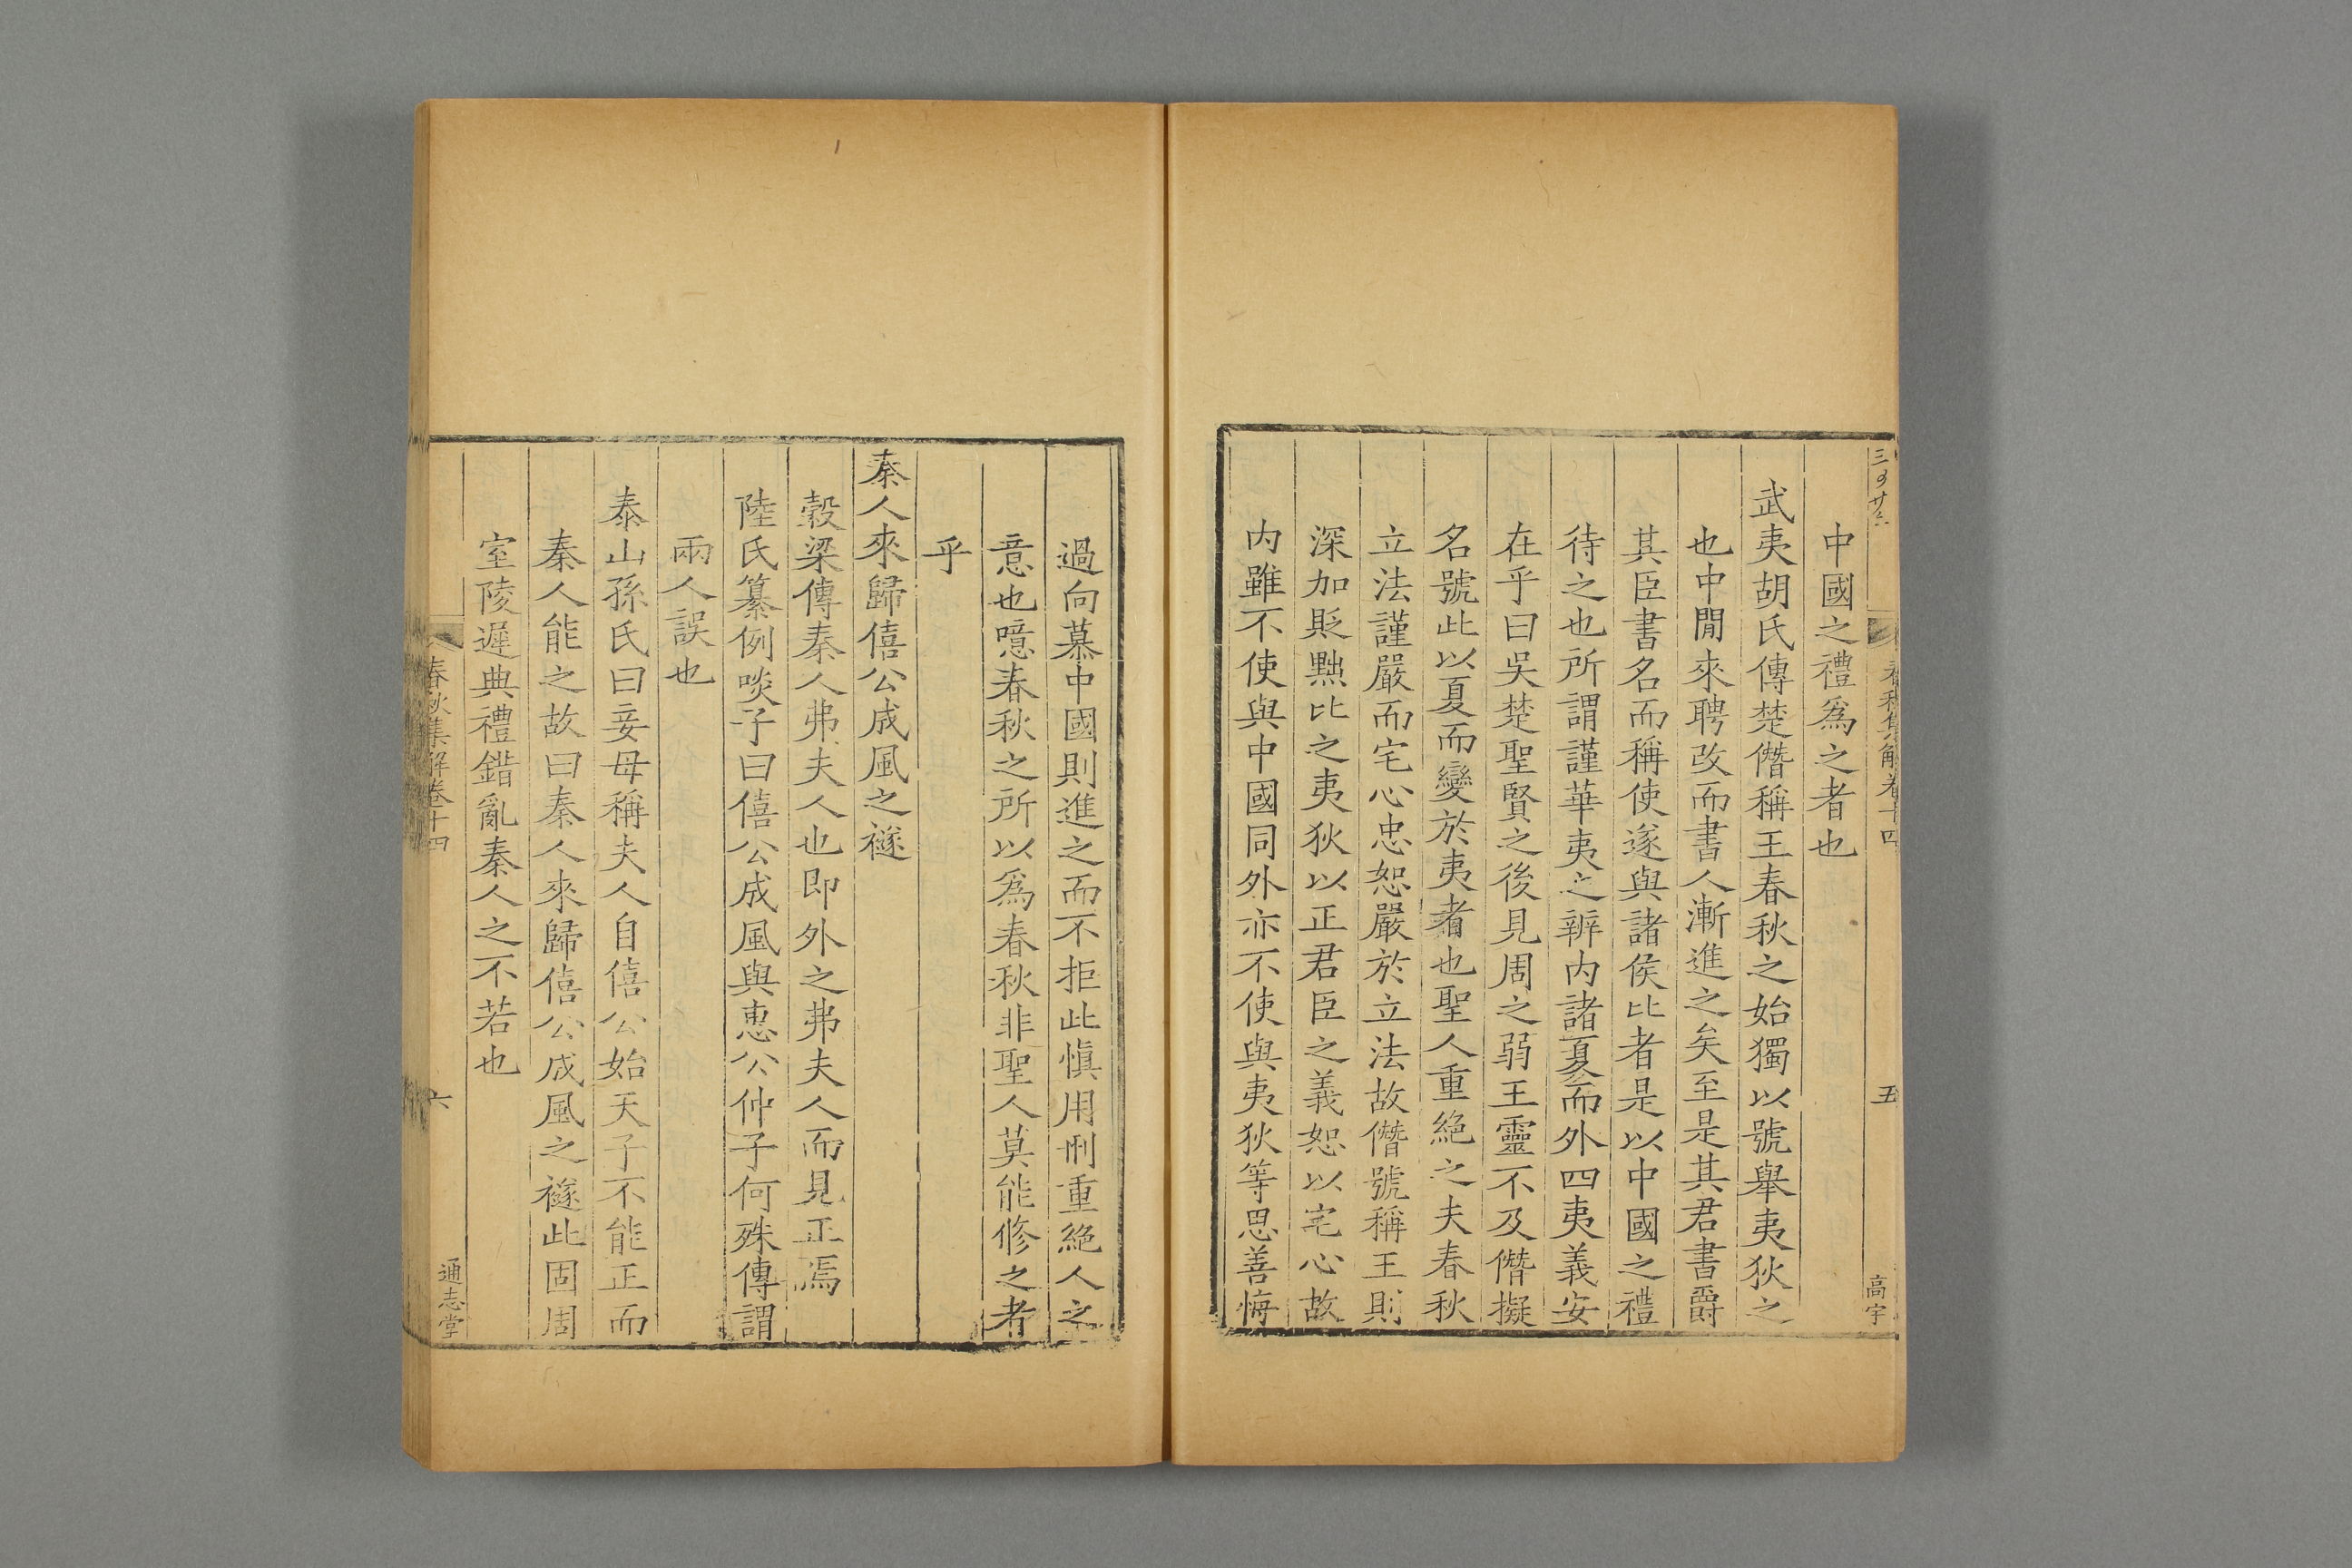 春秋集解卷十四
五
高宇
中國之禮爲之者也
武夷胡氏傳楚僭稱王春秋之始獨以號舉夷狄之
也中閒來聘改而書人漸進之矣至是其君書爵
其臣書名而稱使遂與諸侯比者是以中國之禮
待之也所謂謹華夷之辨内諸夏而外四夷義安
在乎曰吳楚聖賢之後見周之弱王靈不及僭擬
名號此以夏而變於夷者也聖人重絶之夫春秋
立法謹嚴而宅心忠恕嚴於立法故僭號稱王則
深加貶黜比之夷狄以正君臣之義恕以宅心故
内雖不使與中國同外亦不使與夷狄等思善悔
過向慕中國則進之而不拒此愼用刑重絶人之
意也噫春秋之所以爲春秋非聖人莫能修之者
乎
秦人來歸僖公成風之襚
穀梁傳秦人弗夫人也即外之弗夫人而見正焉
陸氏纂例啖子曰僖公成風與惠公仲子何殊傳謂
兩人誤也
泰山孫氏曰妾母稱夫人自僖公始天子不能正而
秦人能之故曰秦人來歸僖公成風之襚此固周
室陵遲典禮錯亂秦人之不若也
春秋集解卷十四
六
通志堂